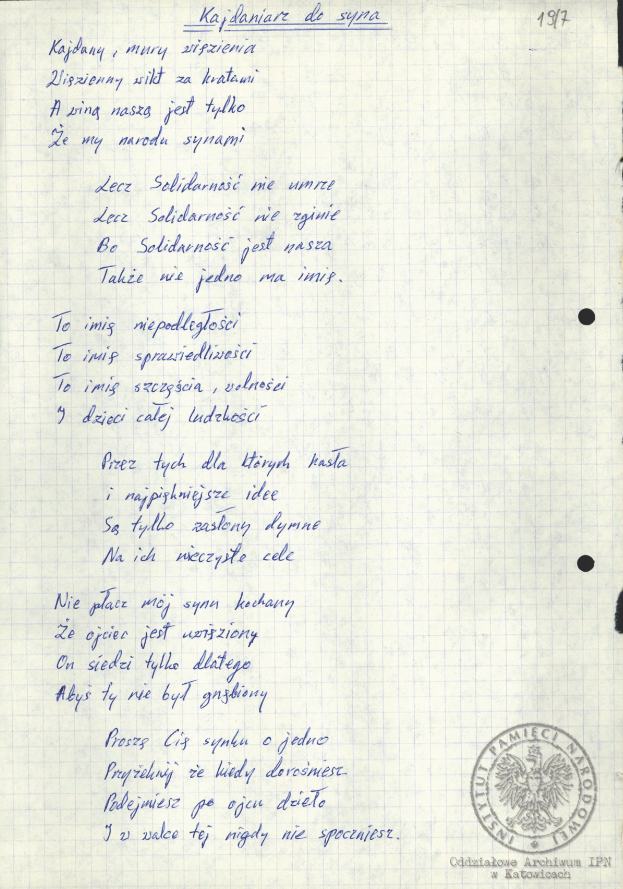 Kajdaniarz do syna
19/7
Kajdany, mury więzienia
Więzienny wikt za kratami
A winą naszą jest tylko
Że my narodu synami
Lecz Solidarność nie umrze
Lecz Solidarność nie zginie
Bo Solidarność jest nasza
Także nie jedno ma imię.
To imię niepodległości
To imię sprawiedliwości
To imię szczęścia, wolności
I dzieci całej ludzkości
Przez tych dla których hasła
i najpiękniejsze idee
Są tylko zasłony dymne
Na ich nieczyste cele
Nie płacz mój synu kochany
Że ojciec jest uwięziony
On siedzi tylko dlatego
Abyś ty nie był gnębiony
Proszę Cię synku o jedno
Przyżeknij że kiedy dorośniesz
Podejmiesz po ojcu dzieło
I w walce tej nigdy nie spoczniesz.
INSTYTUT PAMIĘCI NARODOWEJ
Oddziałowe Archiwum IPN
w Katowicach